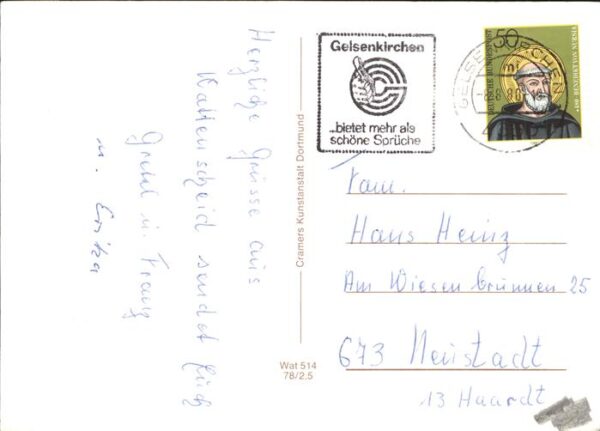 Herzliche Grüsse aus
Wattenscheid sendet Euch
Gretel u. Franz
u. Erika
Cramers Kunstanstalt Dortmund
Wat 514
78/2.5
Gelsenkirchen
...bietet mehr als
schöne Sprüche
GELSENKIRCHEN
50
DEUTSCHE BUNDESPOST
Fam.
Hans Heinz
Am Wiesenbrunnen 25
673 Neustadt
13 Haardt